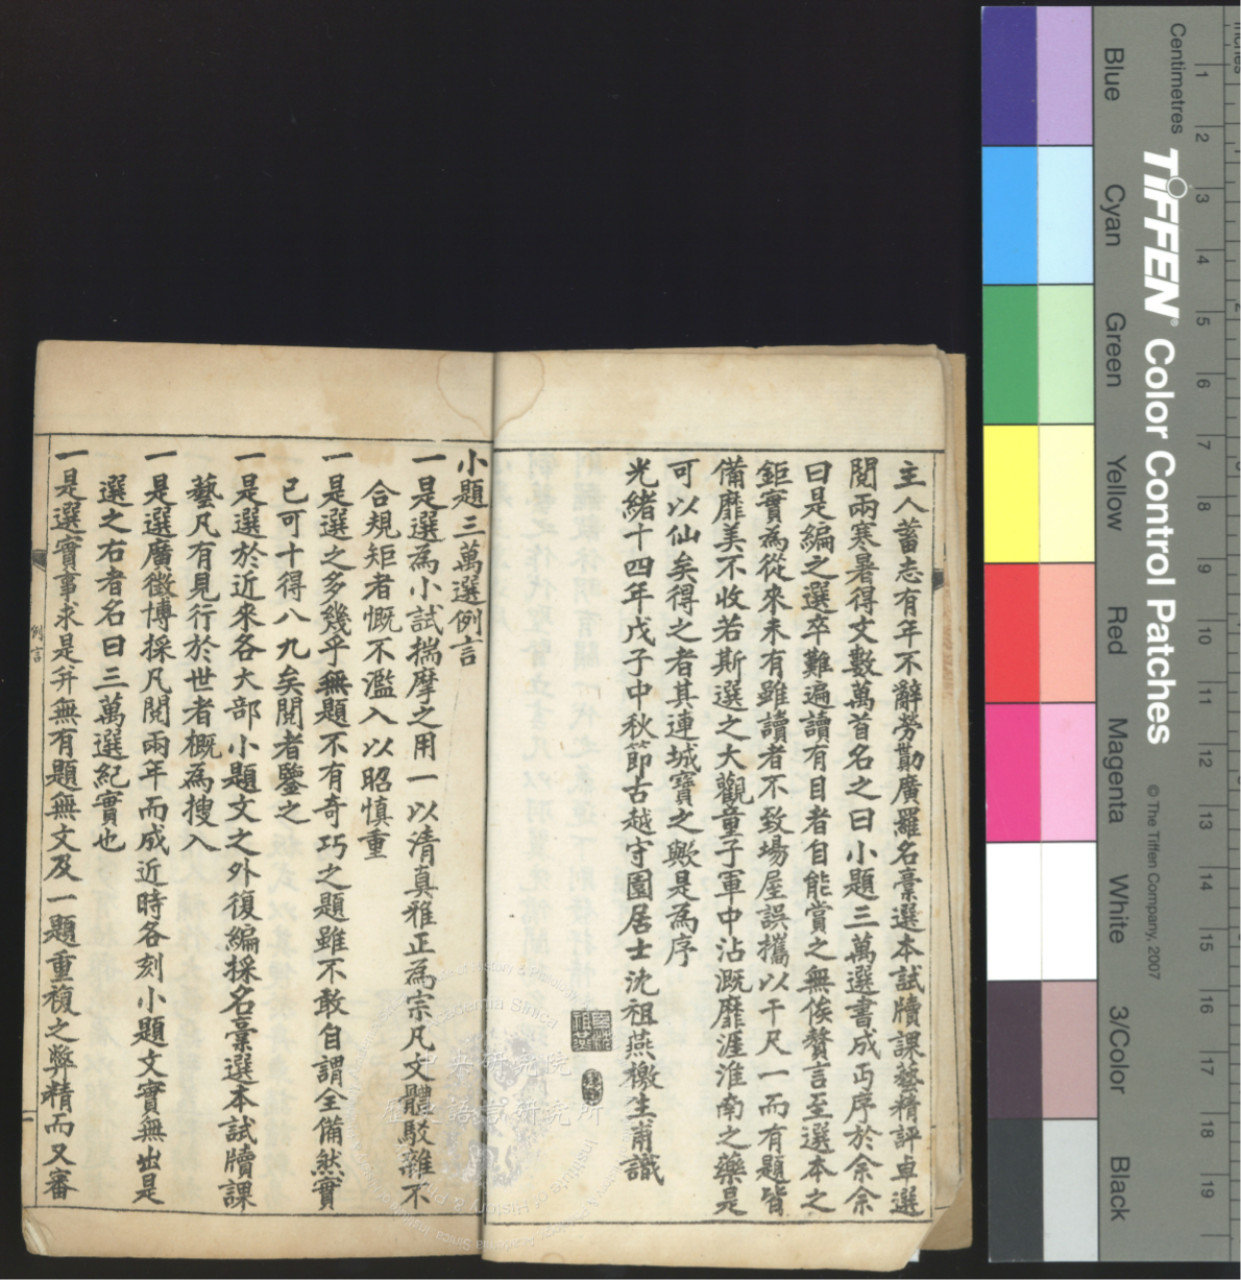 主人蓄志有年不辭勞勩廣羅名稾選本試牘課藝精評卓選
閱兩寒暑得文數萬首名之曰小題三萬選書成丐序於余余
曰是編之選卒難遍讀有目者自能賞之無俟贅言至選本之
鉅實為從來未有雖讀者不致場屋誤攜以千尺一而有題皆
備靡美不收若斯選之大觀童子軍中沾溉靡涯淮南之藥是
可以仙矣得之者其連城寶之歟是為序
光緒十四年戊子中秋節古越守園居士沈祖燕檄生甫識
小題三萬選例言
一是選為小試揣摩之用一以清真雅正為宗凡文體駁雜不
合規矩者慨不濫入以昭慎重
一是選之多幾乎無題不有奇巧之題雖不敢自謂全備然實
已可十得八九矣閱者鑒之
一是選於近來各大部小題文之外復編採名稾選本試牘課
藝凡有見行於世者概為搜入
一是選廣徵博採凡閱兩年而成近時各刻小題文實無出是
選之右者名曰三萬選紀實也
一是選實事求是并無有題無文及一題重複之弊精而又審
例言
一
Centimetres
TIFFEN® Color Control Patches
© The Tiffen Company, 2007
Blue
Cyan
Green
Yellow
Red
Magenta
White
3/Color
Black
1
2
3
4
5
6
7
8
9
10
11
12
13
14
15
16
17
18
19
中央研究院
歷史語言研究所